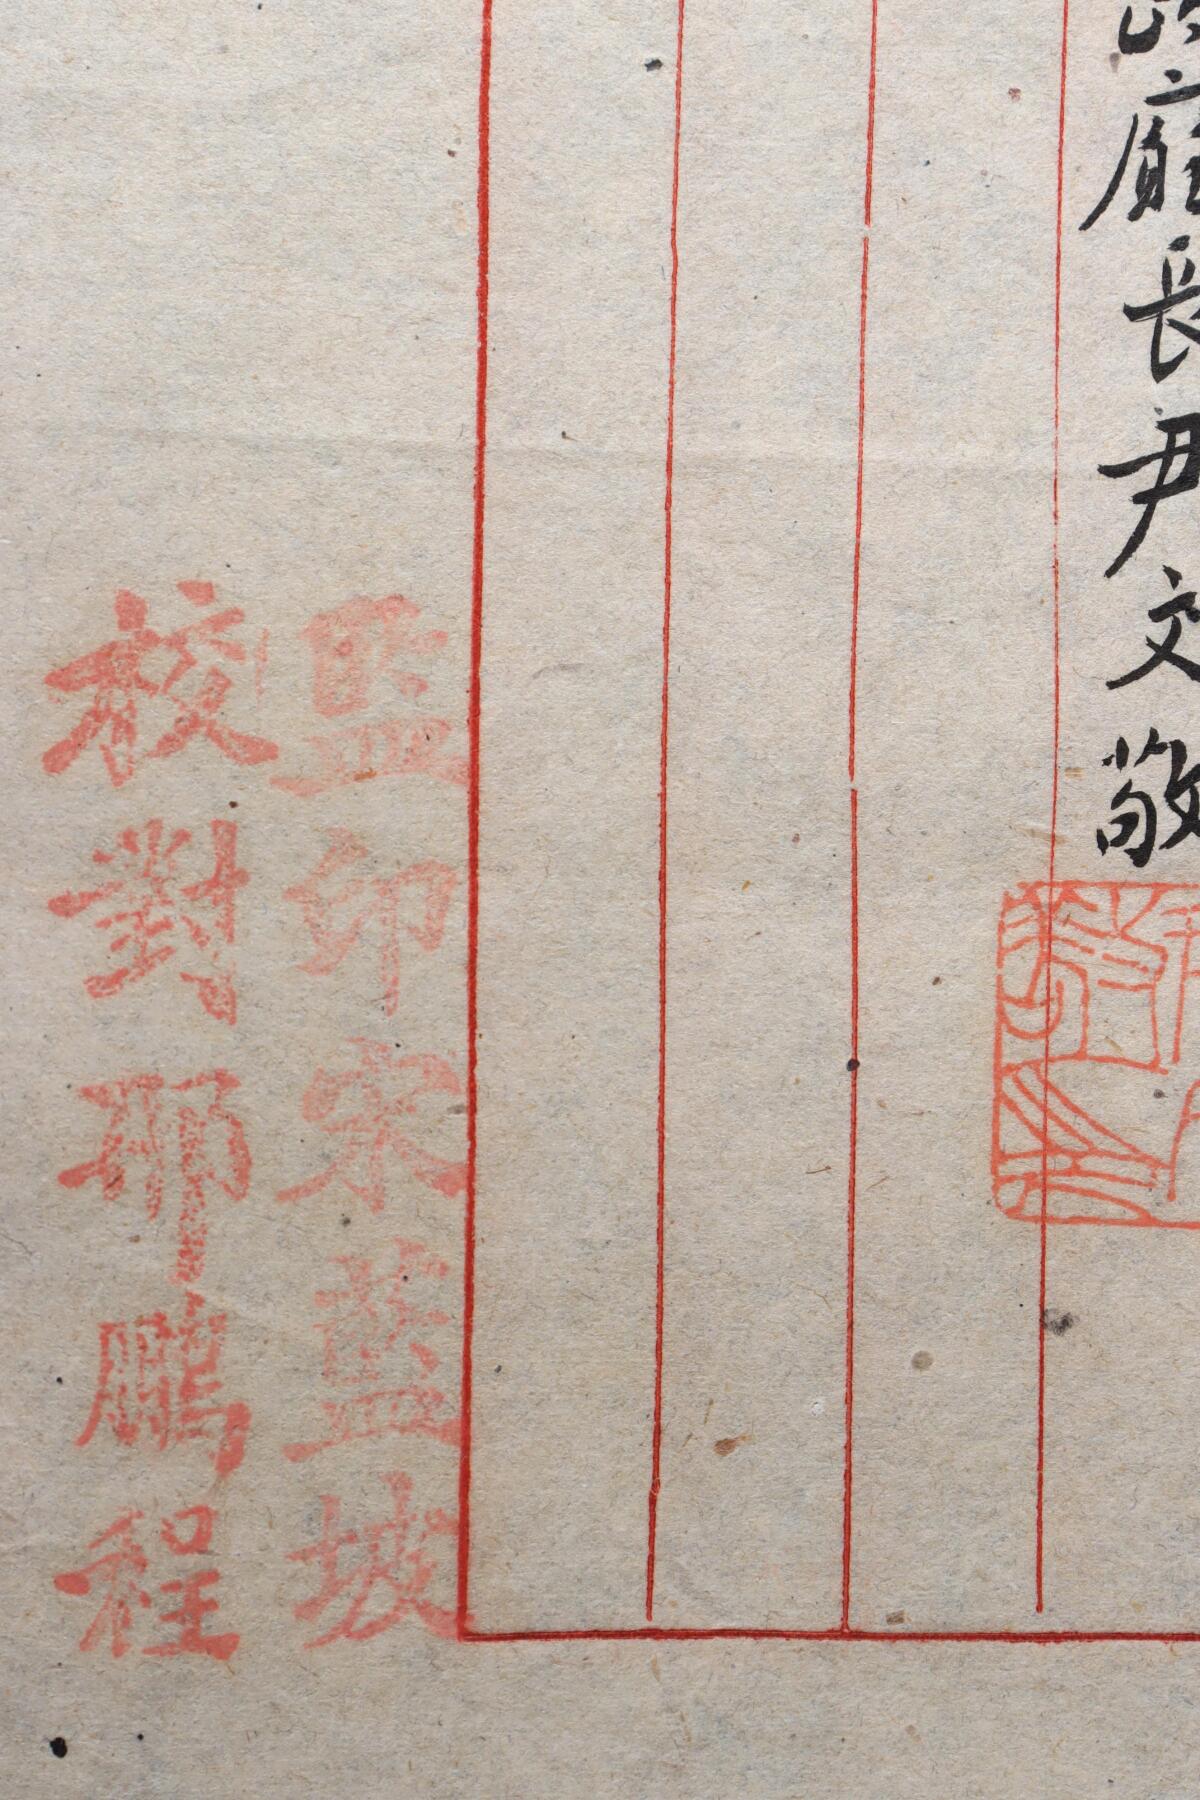 廳長尹文敬
監印宋藍坡
校對邢鵬程